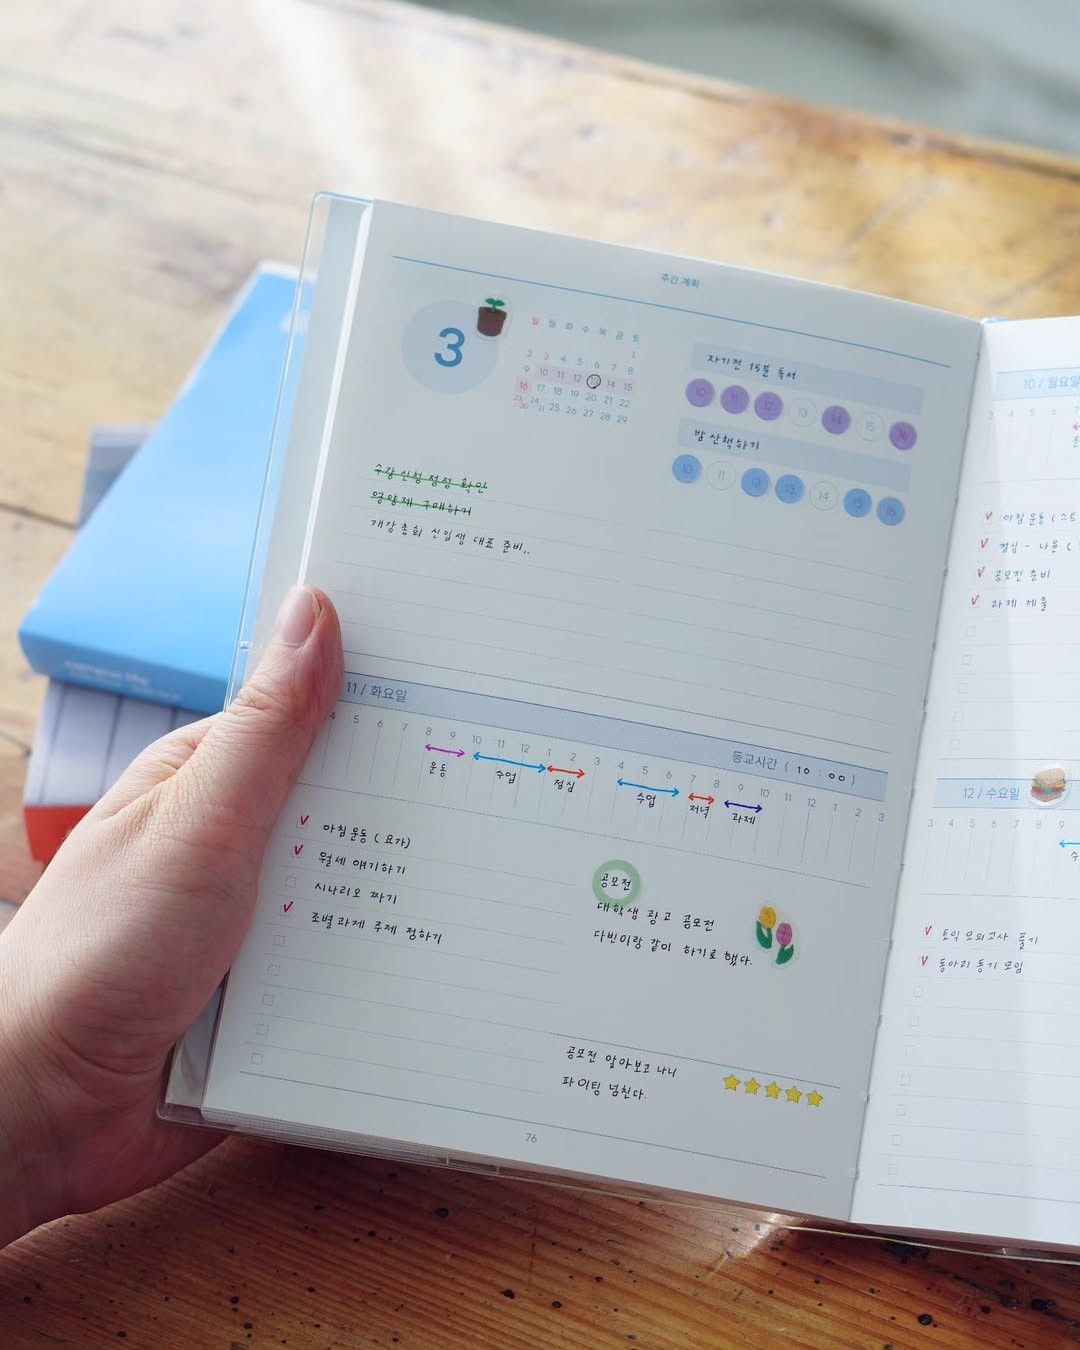 주간 계획
3
일 월 화 수 목 금 토
1
2 3 4 5 6 7 8
9 10 11 12 13 14 15
16 17 18 19 20 21 22
23 24 25 26 27 28 29
30 31
자기전 15분 독서
10 11 12 13 14 15 16
밤 산책하기
10 11 12 13 14 15 16
수강신청 정정 확인
영양제 구매하기
개강총회 신입생 대표 준비..
11 / 화요일
등교시간 ( 10 : 00 )
4 5 6 7 8 9 10 11 12 1 2 3 4 5 6 7 8 9 10 11 12 1 2 3
운동 수업 점심 수업 저녁 과제
아침운동 ( 요가)
월세 얘기하기
시나리오 짜기
조별과제 주제 정하기
공모전
대학생 광고 공모전
다빈이랑 같이 하기로 했다.
공모전 알아보고 나니
파이팅 넘친다.
76
10 / 월요일
3 4 5 6 7
아침운동 ( 스트
점심 - 나윤 (
공모전 준비
과제 제출
12 / 수요일
3 4 5 6 7 8 9
토익 모의고사 풀기
동아리 동기 모임